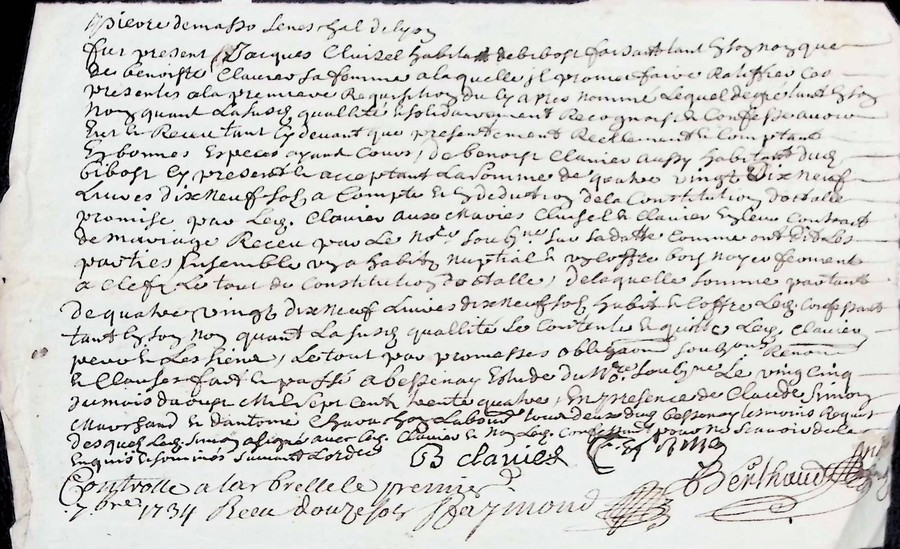 pierre demasso seneschal de lyon
fut present Jacques Cluzel habitant de bibost faisant tant en son nom que
de benoiste Clavier sa femme a laquelle il promet faire Ratiffier ces
presentes a la premiere Requisition du cy apres nommé Lequel de gré tant en son
nom quant La susd qualitté et solidairement Recognois et Confesse avoir
Eu et Receu tant cy devant que presentement Reellement et Comptant
En bonnes Especes ayant Cours, de benoist Clavier aussy habitant dud
bibost cy present et acceptant La somme de quatre vingt Dix neuf
Livres dix neuf sols a Compte et En deduction de la Constitution dotalle
promise par Led. Clavier aux mariés Cluzel et Clavier En leur Contract
de mariage Receu par Le Nore soubne sur sa datte comme ont dit Les
parties Ensemble un habit nuptial et un coffre bois noyer fermant
a clef, Le tout de Constitution dotalle, de laquelle somme partant
De quatre vingt dix neuf Livres dix neuf sols habit et Coffre Led. Confessant
tant En son nom quant La susd qualitté se Contente et quitte Led. Clavier
pere et Les siens, Le tout par promesses obligaon soubzons Renons
et Clauses fait et passé a bessenay Estude du Nore soubne Le vingt cinq
du mois daoust Mil sept Cent trente quatre, En presence de Claude Simon
Marchand et dantoine Labour tous deux dud bessenay temoins Requis
desquels Led. Simon a signé avec led. Clavier et non Led. Confessant pour ne scavoir de ce
Enquis et sommés suivant Lordce
B clavier C Simon
Berthaud
Controllé a larbrelle le premier
7bre 1734 Receu douze sols Raymond